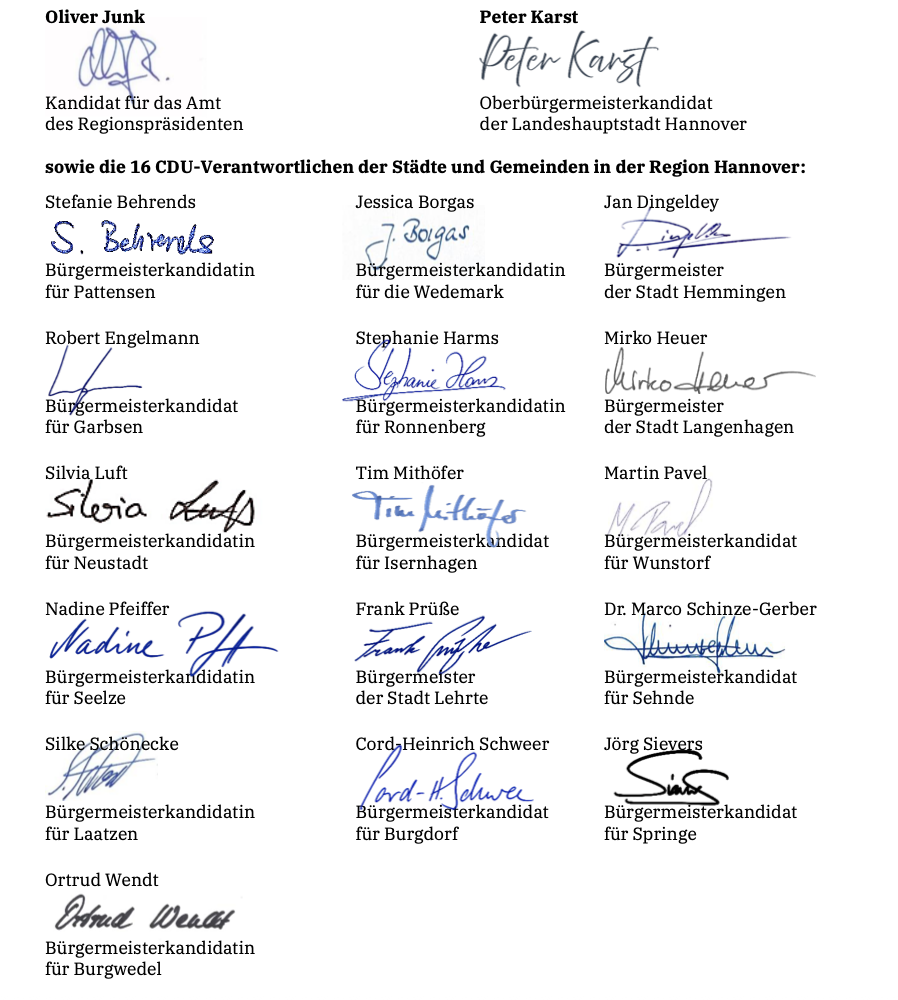 Oliver Junk
Kandidat für das Amt
des Regionspräsidenten
Peter Karst
Peter Karst
Oberbürgermeisterkandidat
der Landeshauptstadt Hannover
sowie die 16 CDU-Verantwortlichen der Städte und Gemeinden in der Region Hannover:
Stefanie Behrends
S. Behrends
Bürgermeisterkandidatin
für Pattensen
Jessica Borgas
J. Borgas
Bürgermeisterkandidatin
für die Wedemark
Jan Dingeldey
Bürgermeister
der Stadt Hemmingen
Robert Engelmann
Bürgermeisterkandidat
für Garbsen
Stephanie Harms
Stephanie Harms
Bürgermeisterkandidatin
für Ronnenberg
Mirko Heuer
Mirko Heuer
Bürgermeister
der Stadt Langenhagen
Silvia Luft
Silvia Luft
Bürgermeisterkandidatin
für Neustadt
Tim Mithöfer
Tim Mithöfer
Bürgermeisterkandidat
für Isernhagen
Martin Pavel
M. Pavel
Bürgermeisterkandidat
für Wunstorf
Nadine Pfeiffer
Nadine
Bürgermeisterkandidatin
für Seelze
Frank Prüße
Frank Prüße
Bürgermeister
der Stadt Lehrte
Dr. Marco Schinze-Gerber
Bürgermeisterkandidat
für Sehnde
Silke Schönecke
Bürgermeisterkandidatin
für Laatzen
Cord-Heinrich Schweer
Cord-H. Schweer
Bürgermeisterkandidat
für Burgdorf
Jörg Sievers
Bürgermeisterkandidat
für Springe
Ortrud Wendt
Ortrud Wendt
Bürgermeisterkandidatin
für Burgwedel